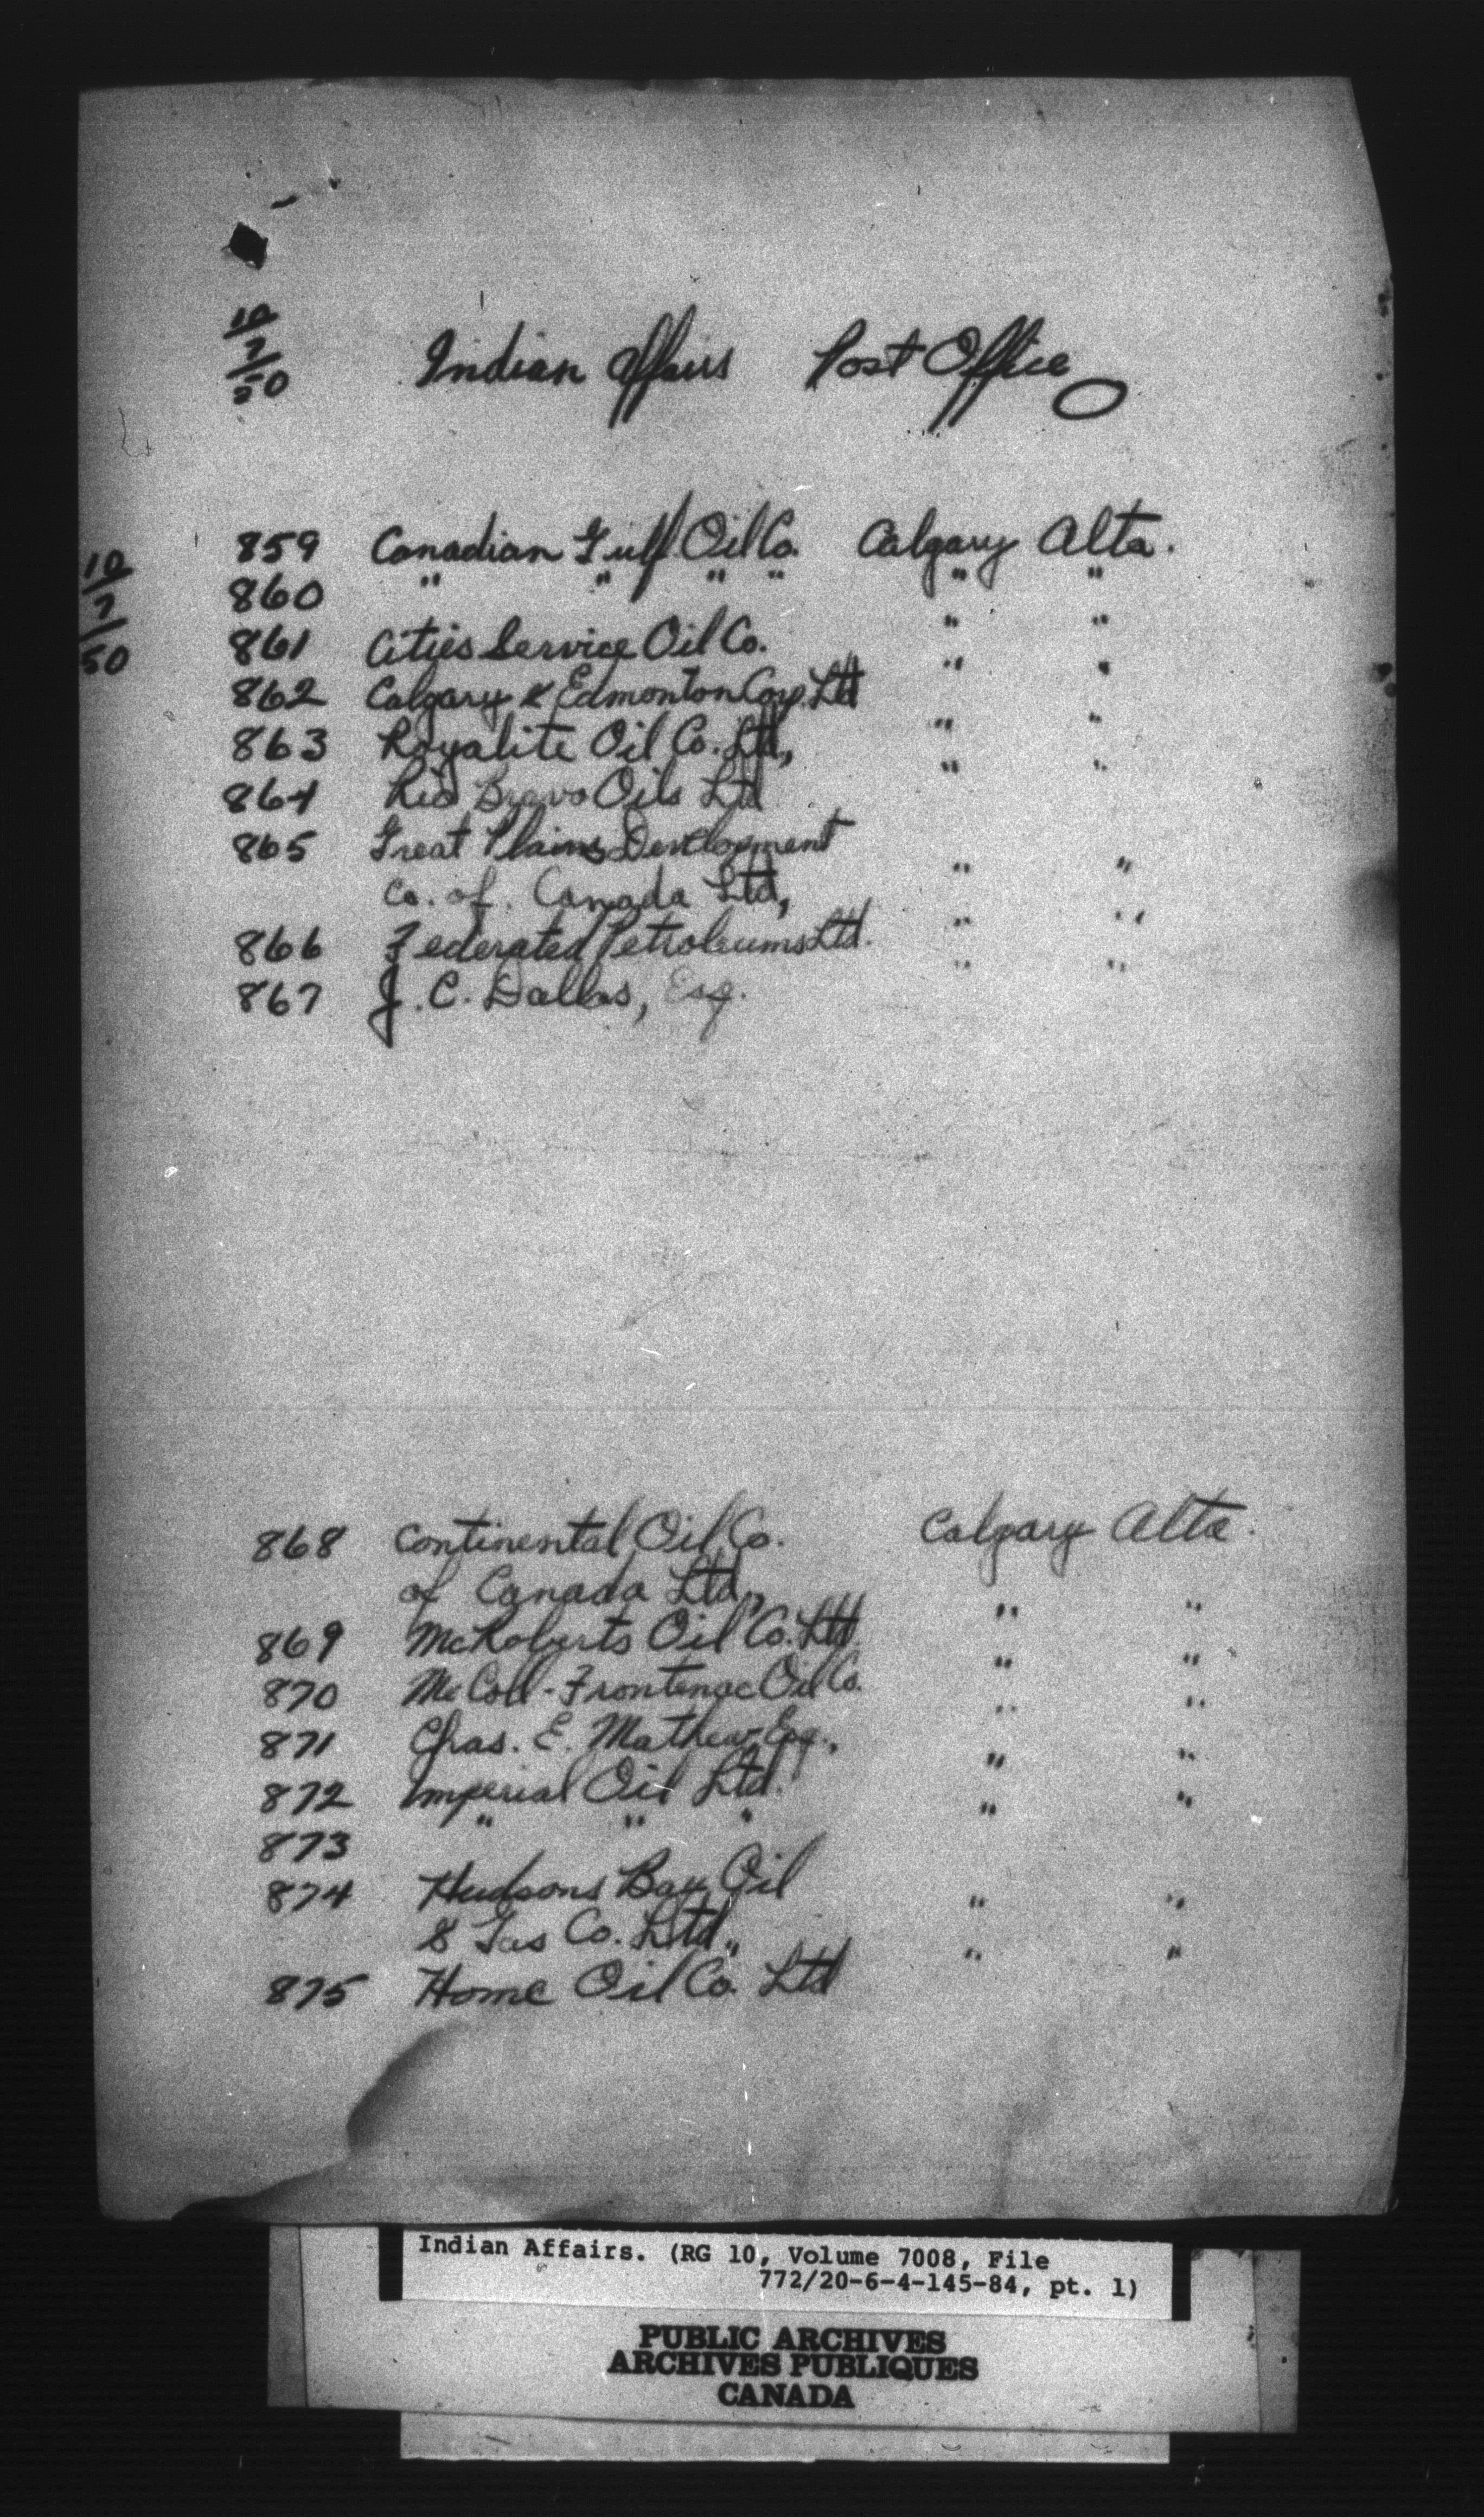 10/7/50 Indian Affairs Post Office
10/7/50
859 Canadian Gulf Oil Co. Calgary Alta.
860 " " " " " "
861 Cities Service Oil Co. " "
862 Calgary & Edmonton Corp. Ltd " "
863 Royalite Oil Co. Ltd, " "
864 Rio Bravo Oils Ltd " "
865 Great Plains Development
Co. of Canada Ltd, " "
866 Federated Petroleums Ltd. " "
867 J. C. Dallas, Esq. " "
868 Continental Oil Co. Calgary Alta.
of Canada Ltd,
869 McRoberts Oil Co. Ltd. " "
870 McColl-Frontenac Oil Co. " "
871 Chas. E. Mathew, Esq., " "
872 Imperial Oil Ltd. " "
873 " " " " "
874 Hudsons Bay Oil
& Gas Co. Ltd., " "
875 Home Oil Co. Ltd " "
Indian Affairs. (RG 10, Volume 7008, File
772/20-6-4-145-84, pt. 1)
PUBLIC ARCHIVES
ARCHIVES PUBLIQUES
CANADA